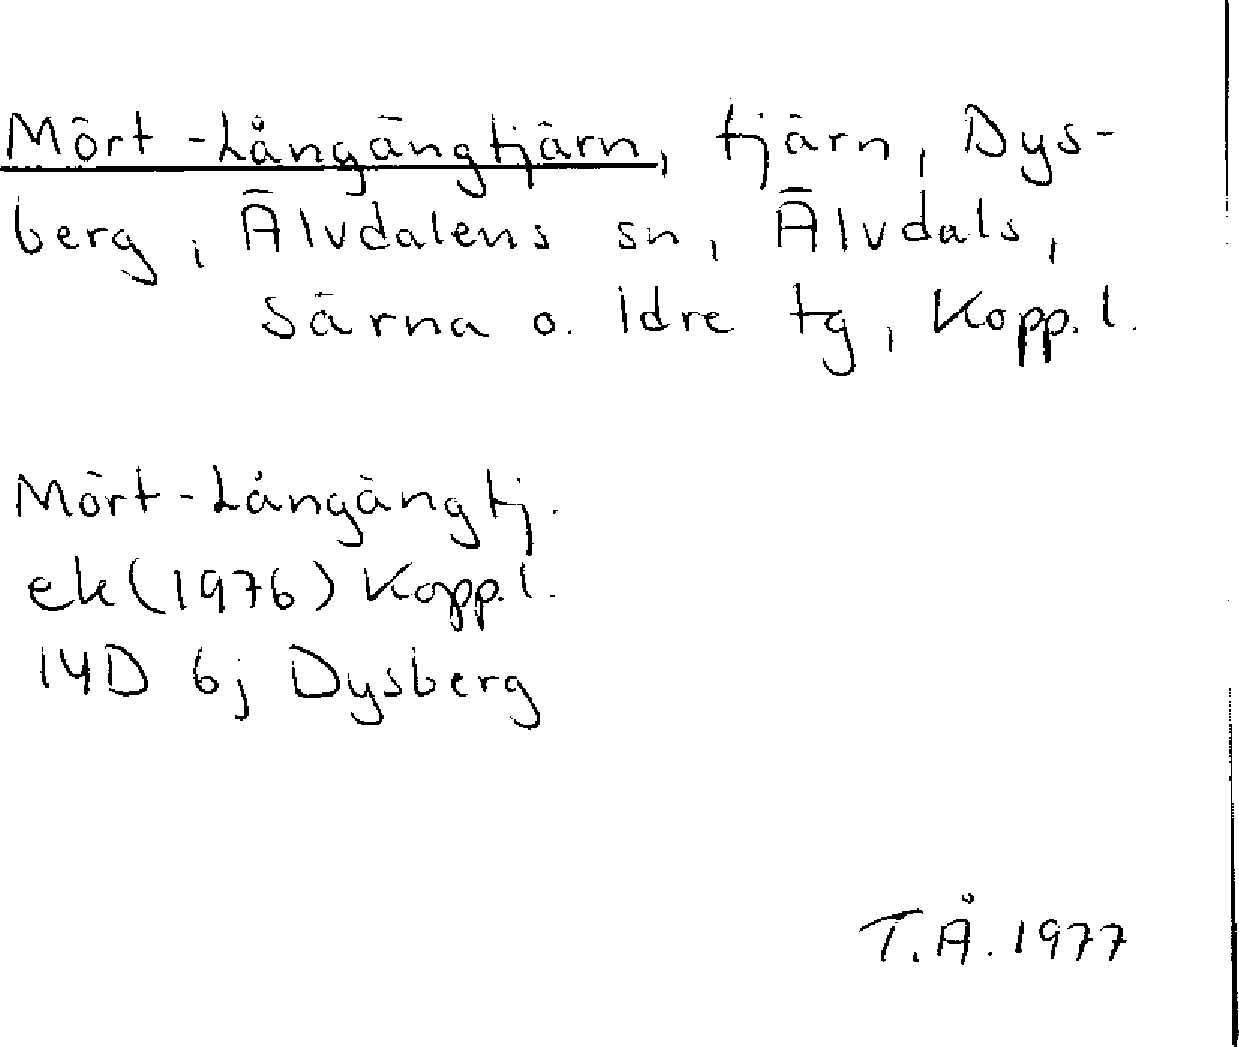 Mört-Långängtjärn, tjärn, Dys-
berg, Älvdalens sn, Älvdals,
Särna o. Idre tg, Kopp. l.
Mört-Långängtj.
ek(1976) Kopp. l.
14D 6j Dysberg
T.Å. 1977